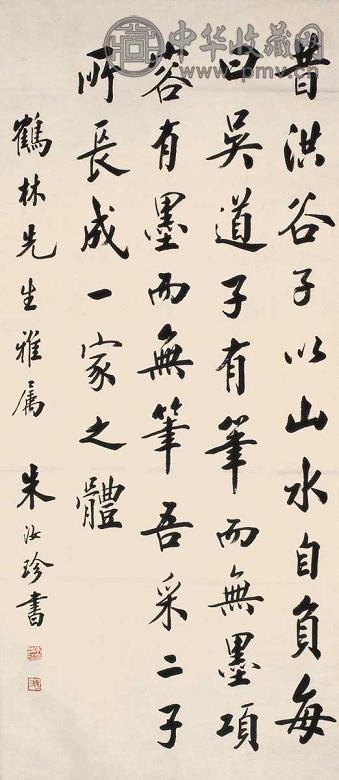 昔洪谷子以山水自負每
曰吳道子有筆而無墨項
容有墨而無筆吾采二子
所長成一家之體
鶴林先生雅属
朱汝珍書
中华收藏网
www.pmv.cn